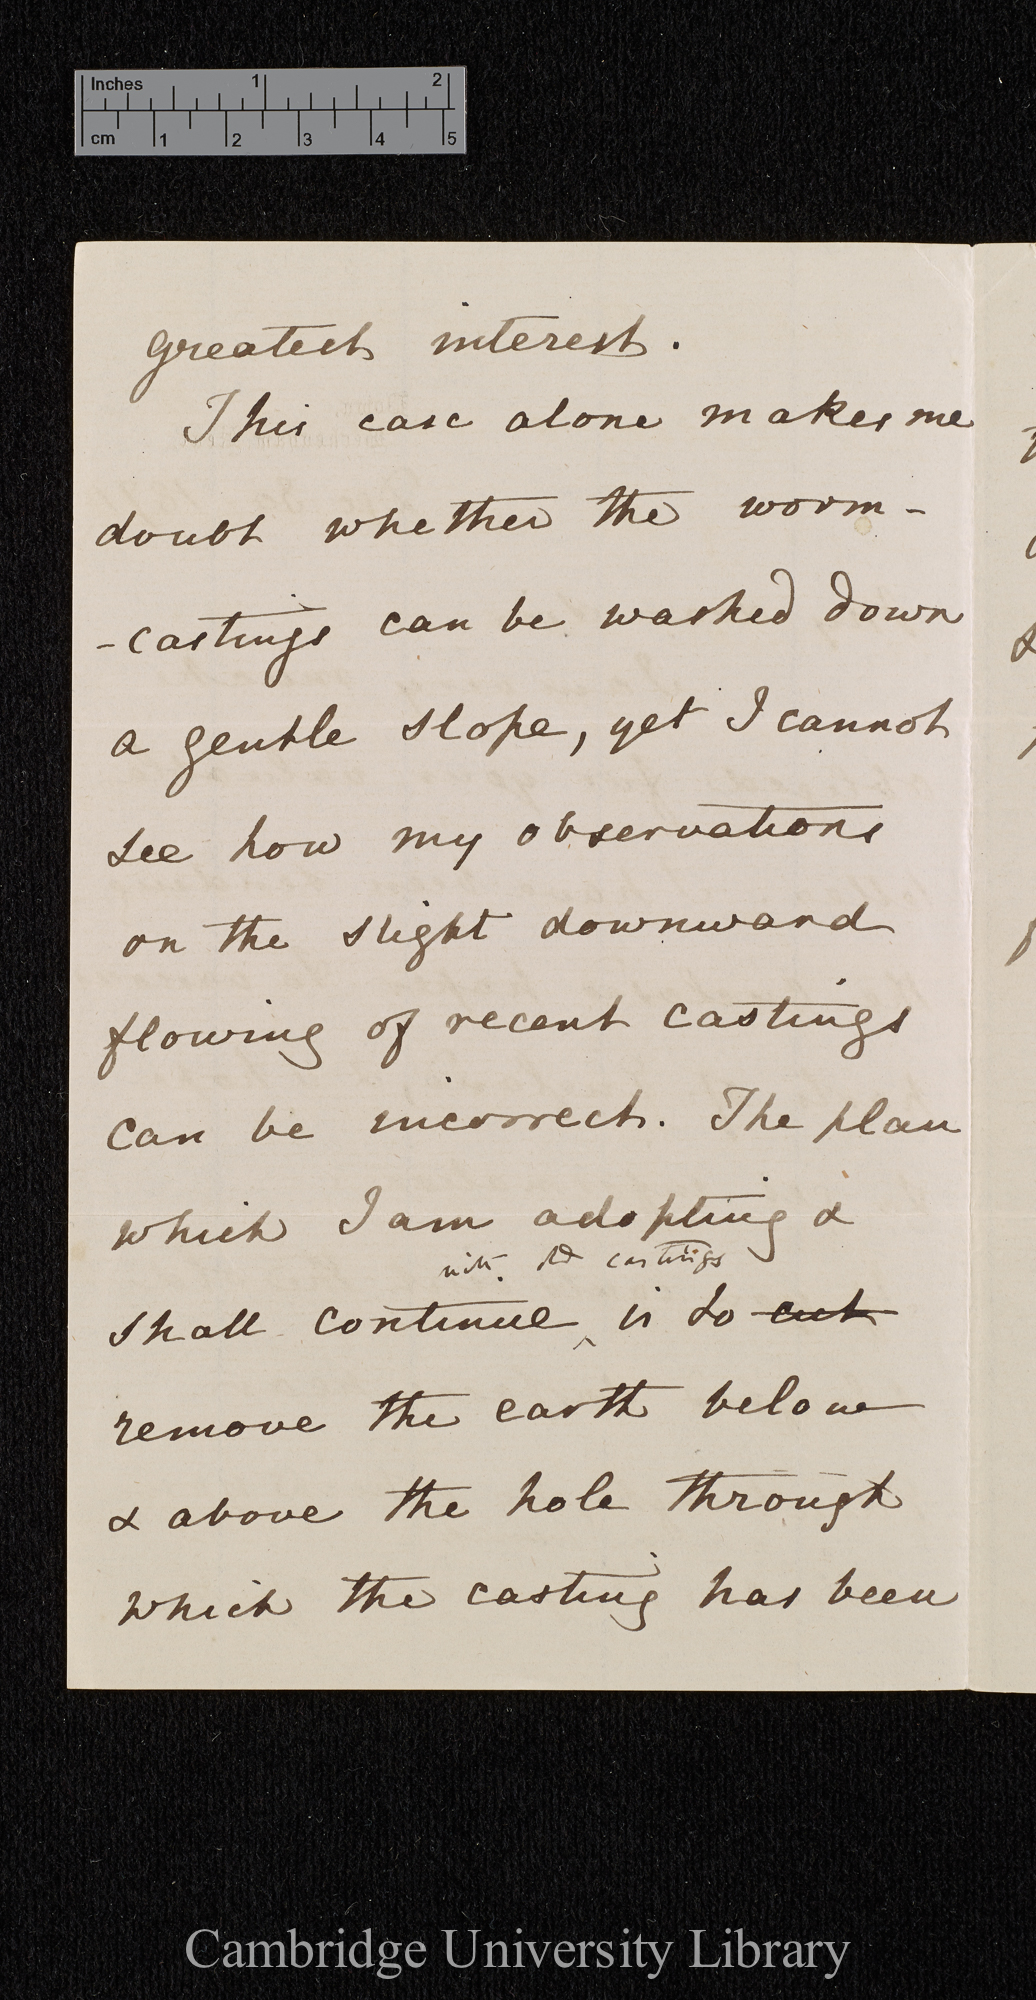 Inches 1 2
cm 1 2 3 4 5
greatest interest.
This case alone makes me
doubt whether the worm-
-castings can be washed down
a gentle slope, yet I cannot
see how my observations
on the slight downward
flowing of recent castings
can be incorrect. The plan
which I am adopting &
with old castings
shall continue ^ is to cut
remove the earth below
& above the hole through
which the casting has been
Cambridge University Library